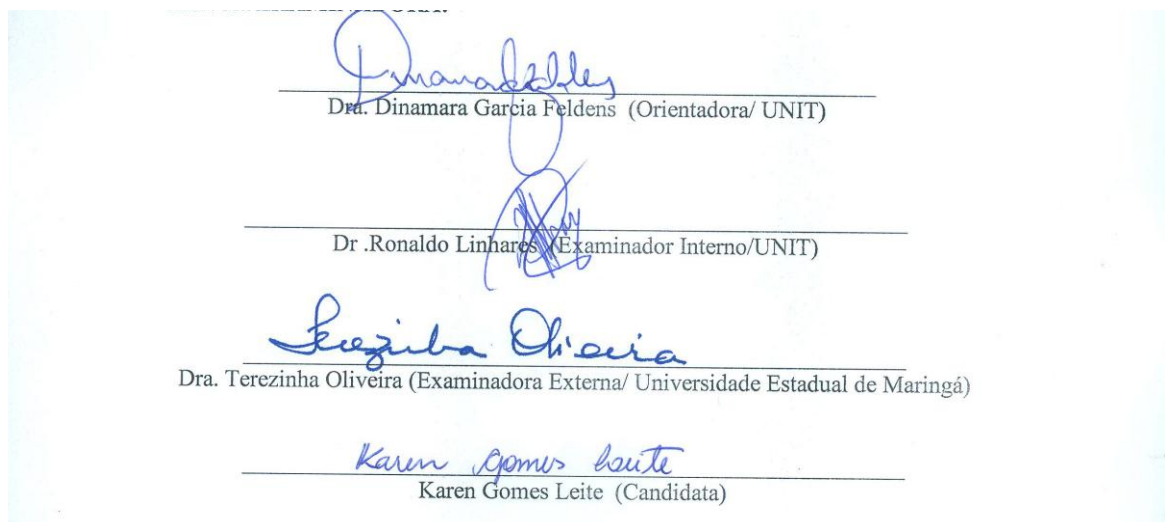 Dra. Dinamara Garcia Feldens (Orientadora/ UNIT)
Dr .Ronaldo Linhares (Examinador Interno/UNIT)
Terezinha Oliveira
Dra. Terezinha Oliveira (Examinadora Externa/ Universidade Estadual de Maringá)
Karen Gomes Leite
Karen Gomes Leite (Candidata)